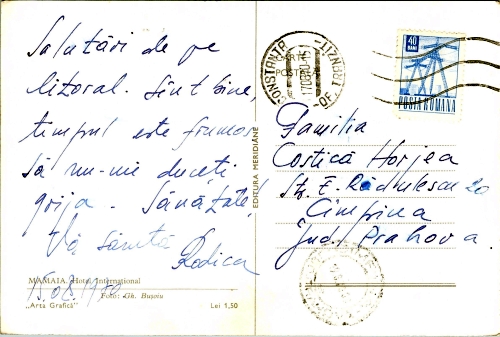 Salutări de pe
litoral. Sînt bine,
timpul este frumos
Să nu-mi duceți
grija. Sănătate!
Vă sărută
Rodica
MAMAIA. Hotel International
Foto: Gh. Bușoiu
„Arta Grafică”
Lei 1,50
EDITURA MERIDIANE
CONSTANȚA
40
BANI
POSTA ROMANA
Familia
Costică Horjea
Str. E. Rădulescu 20
Cîmpina
Jud. Prahova